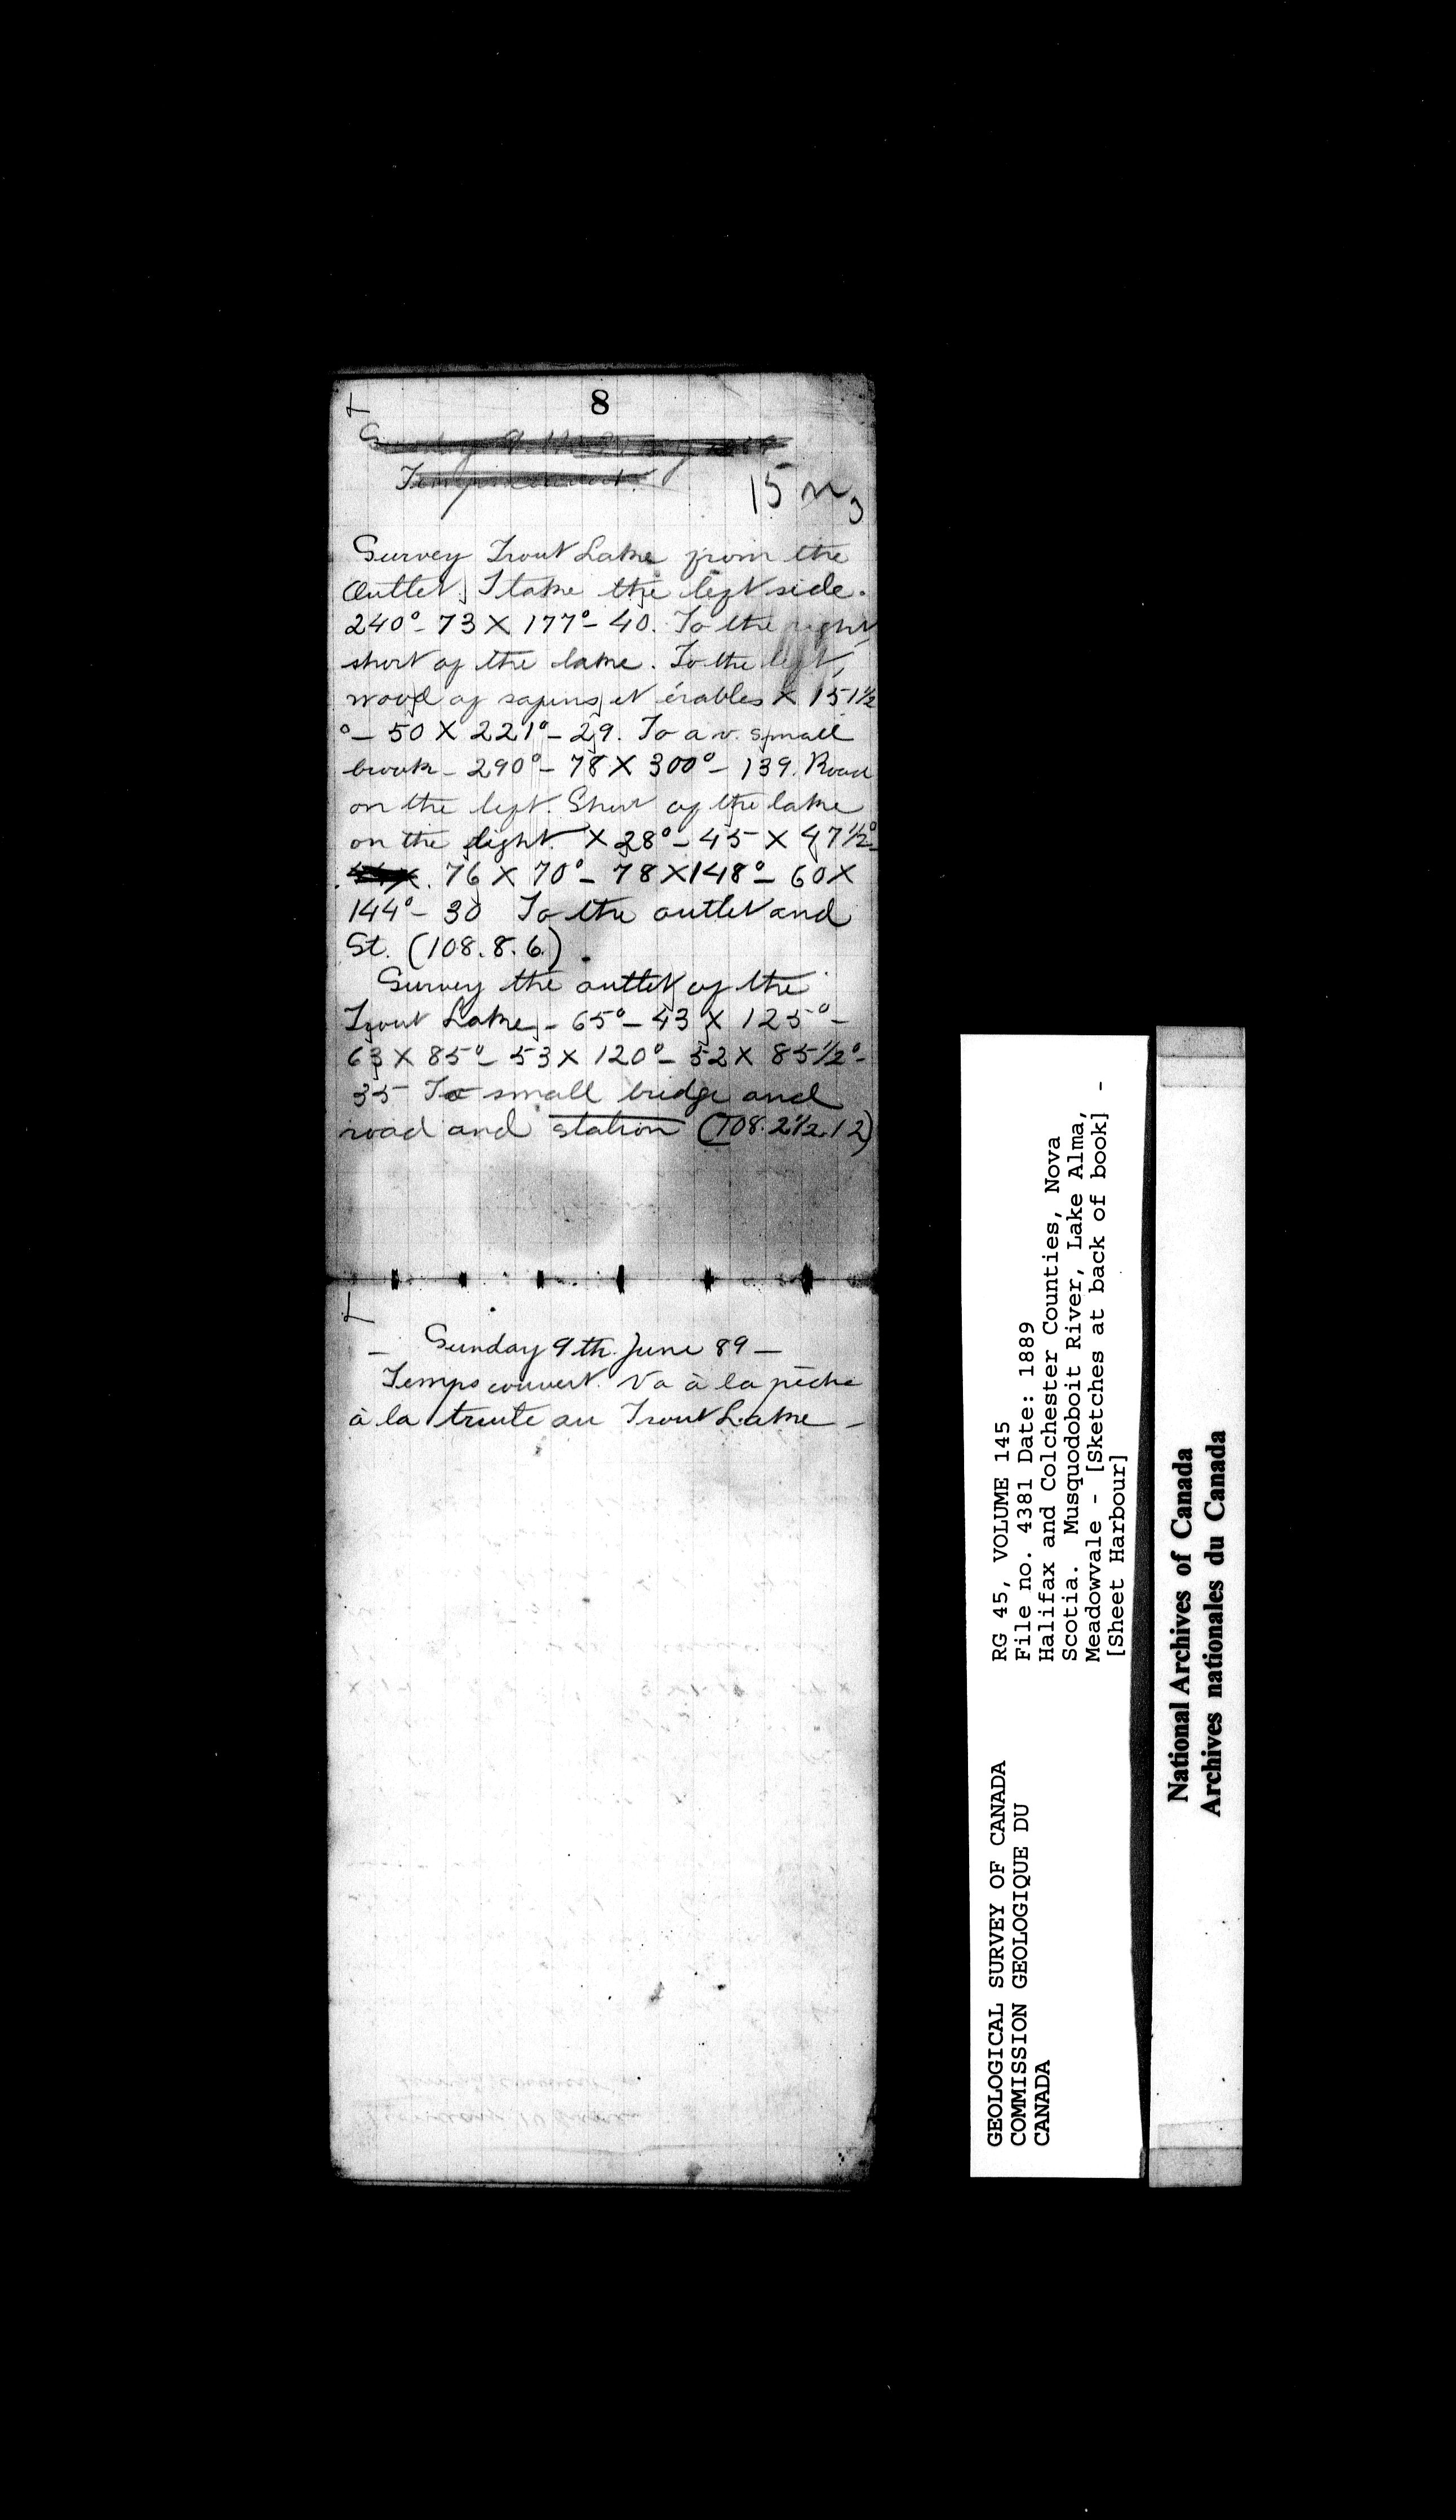 8
15 m
Survey Trout Lake from the
Outlet. I take the left side.
240° - 73 X 177° - 40. To the right
short of the lake. To the left,
wood of sapins et érables X 151 1/2
° - 50 X 221° - 29. To a v. small
brook - 290° - 78 X 300° - 139. Road
on the left. Shore of the lake
on the right. X 28° - 45 X 47 1/2° -
76 X 70° - 78 X 148° - 60 X
144° - 30 To the outlet and
St. (108.8.6).
Survey the outlet of the
Trout Lake - 65° - 43 X 125° -
63 X 85° - 53 X 120° - 52 X 85 1/2° -
35 To small bridge and
road and station (108.2 1/2.12)
- Sunday 9th. June 89 -
Temps couvert. Va à la pêche
à la truite au Trout Lake -
RG 45, VOLUME 145
File no. 4381 Date: 1889
Halifax and Colchester Counties, Nova
Scotia. Musquodoboit River, Lake Alma,
Meadowvale - [Sketches at back of book] -
[Sheet Harbour]
GEOLOGICAL SURVEY OF CANADA
COMMISSION GEOLOGIQUE DU
CANADA
National Archives of Canada
Archives nationales du Canada